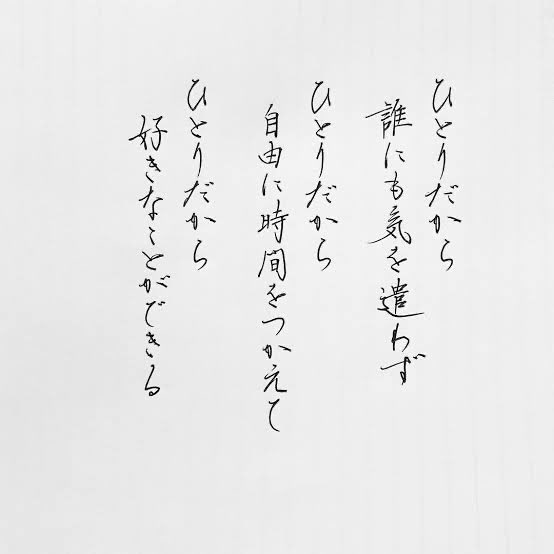 ひとりだから
誰にも気を遣わず
ひとりだから
自由に時間をつかえて
ひとりだから
好きなことができる